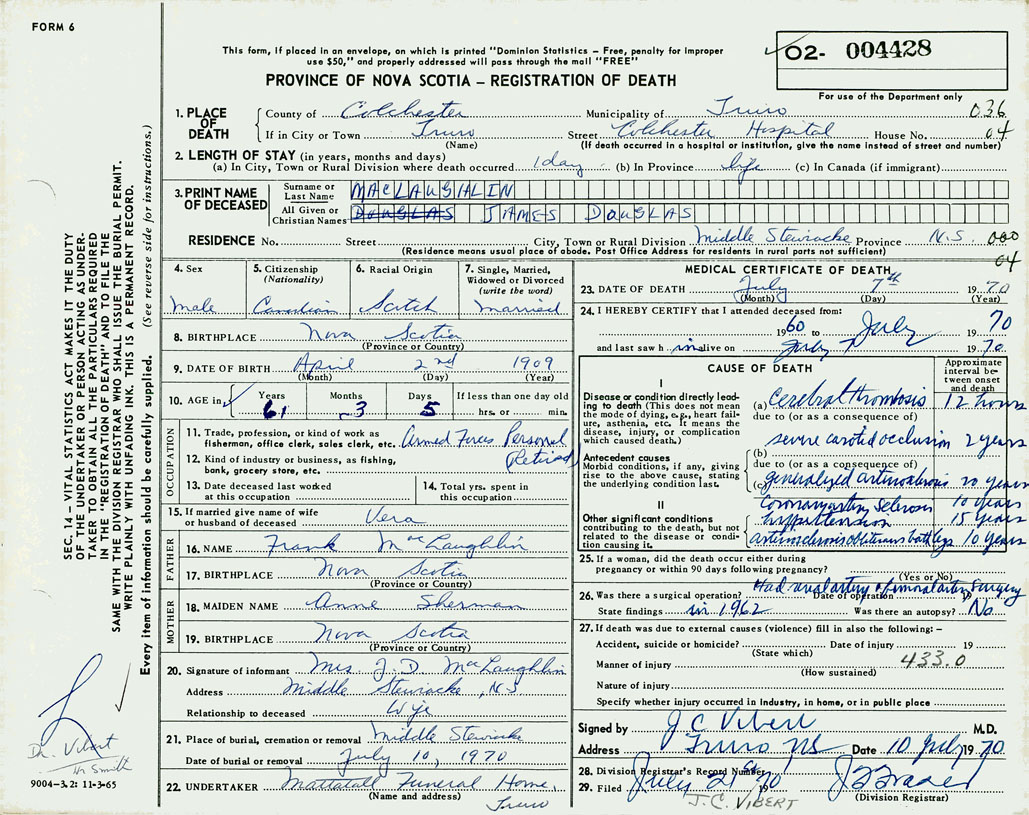 FORM 6
This form, if placed in an envelope, on which is printed "Dominion Statistics – Free, penalty for improper
use $50," and properly addressed will pass through the mail "FREE"
PROVINCE OF NOVA SCOTIA – REGISTRATION OF DEATH
02- 004428
For use of the Department only
1. PLACE OF DEATH
County of Colchester Municipality of Truro 036
If in City or Town Truro Street Colchester Hospital House No. 04
(Name) (If death occurred in a hospital or institution, give the name instead of street and number)
2. LENGTH OF STAY (in years, months and days)
(a) In City, Town or Rural Division where death occurred 1 day (b) In Province life (c) In Canada (if immigrant)
3. PRINT NAME OF DECEASED
Surname or Last Name MACLAUGHLIN
All Given or Christian Names DOUGLAS JAMES DOUGLAS
RESIDENCE No. Street City, Town or Rural Division Middle Stewiacke Province N.S. 000
(Residence means usual place of abode. Post Office Address for residents in rural parts not sufficient) 04
4. Sex
Male
5. Citizenship (Nationality)
Canadian
6. Racial Origin
Scotch
7. Single, Married, Widowed or Divorced (write the word)
Married
8. BIRTHPLACE Nova Scotia
(Province or Country)
9. DATE OF BIRTH April 2nd 1909
(Month) (Day) (Year)
10. AGE in Years Months Days If less than one day old
61 3 5 hrs. or min.
OCCUPATION
11. Trade, profession, or kind of work as fisherman, office clerk, sales clerk, etc. Armed Forces Personal
Retired
12. Kind of industry or business, as fishing, bank, grocery store, etc.
13. Date deceased last worked at this occupation
14. Total yrs. spent in this occupation
15. If married give name of wife or husband of deceased Vera
FATHER
16. NAME Frank MacLaughlin
17. BIRTHPLACE Nova Scotia
(Province or Country)
MOTHER
18. MAIDEN NAME Anne Sherman
19. BIRTHPLACE Nova Scotia
(Province or Country)
20. Signature of informant Mrs. J. D. MacLaughlin
Address Middle Stewiacke, N.S.
Relationship to deceased Wife
21. Place of burial, cremation or removal Middle Stewiacke
Date of burial or removal July 10, 1970
22. UNDERTAKER Mattatall Funeral Home,
(Name and address) Truro
MEDICAL CERTIFICATE OF DEATH
23. DATE OF DEATH July 7th 1970
(Month) (Day) (Year)
24. I HEREBY CERTIFY that I attended deceased from:
1960 to July 1970
and last saw him alive on July 7 1970
CAUSE OF DEATH
Approximate interval between onset and death
I
Disease or condition directly leading to death (This does not mean the mode of dying, e.g., heart failure, asthenia, etc. It means the disease, injury, or complication which caused death.)
(a) Cerebral thrombosis 12 hours
due to (or as a consequence of)
severe carotid occlusion 2 years
Antecedent causes
Morbid conditions, if any, giving rise to the above cause, stating the underlying condition last.
(b)
due to (or as a consequence of)
(c) generalized arteriosclerosis 20 years
II
Other significant conditions
contributing to the death, but not related to the disease or condition causing it.
Coronary artery sclerosis 10 years
hypertension 15 years
arteriosclerosis obliterans both legs 10 years
25. If a woman, did the death occur either during pregnancy or within 90 days following pregnancy?
(Yes or No)
26. Was there a surgical operation? Had femoral artery surgery Date of operation 19
State findings in 1962 Was there an autopsy? No
27. If death was due to external causes (violence) fill in also the following: –
Accident, suicide or homicide? Date of injury 19
(State which)
Manner of injury 433.0
(How sustained)
Nature of injury
Specify whether injury occurred in industry, in home, or in public place
Signed by J C Vibert M.D.
Address Truro NS Date 10 July 1970
28. Division Registrar's Record Number
29. Filed July 21st 1970
(Division Registrar)
J. C. VIBERT
SEC. 14 – VITAL STATISTICS ACT MAKES IT THE DUTY
OF THE UNDERTAKER OR PERSON ACTING AS UNDER-
TAKER TO OBTAIN ALL THE PARTICULARS REQUIRED
IN THE "REGISTRATION OF DEATH" AND TO FILE THE
SAME WITH THE DIVISION REGISTRAR WHO SHALL ISSUE THE BURIAL PERMIT.
WRITE PLAINLY WITH UNFADING INK. THIS IS A PERMANENT RECORD.
Every item of information should be carefully supplied. (See reverse side for instructions.)
Dr. Vibert
in Smith
9004–3.2: 11-3-65